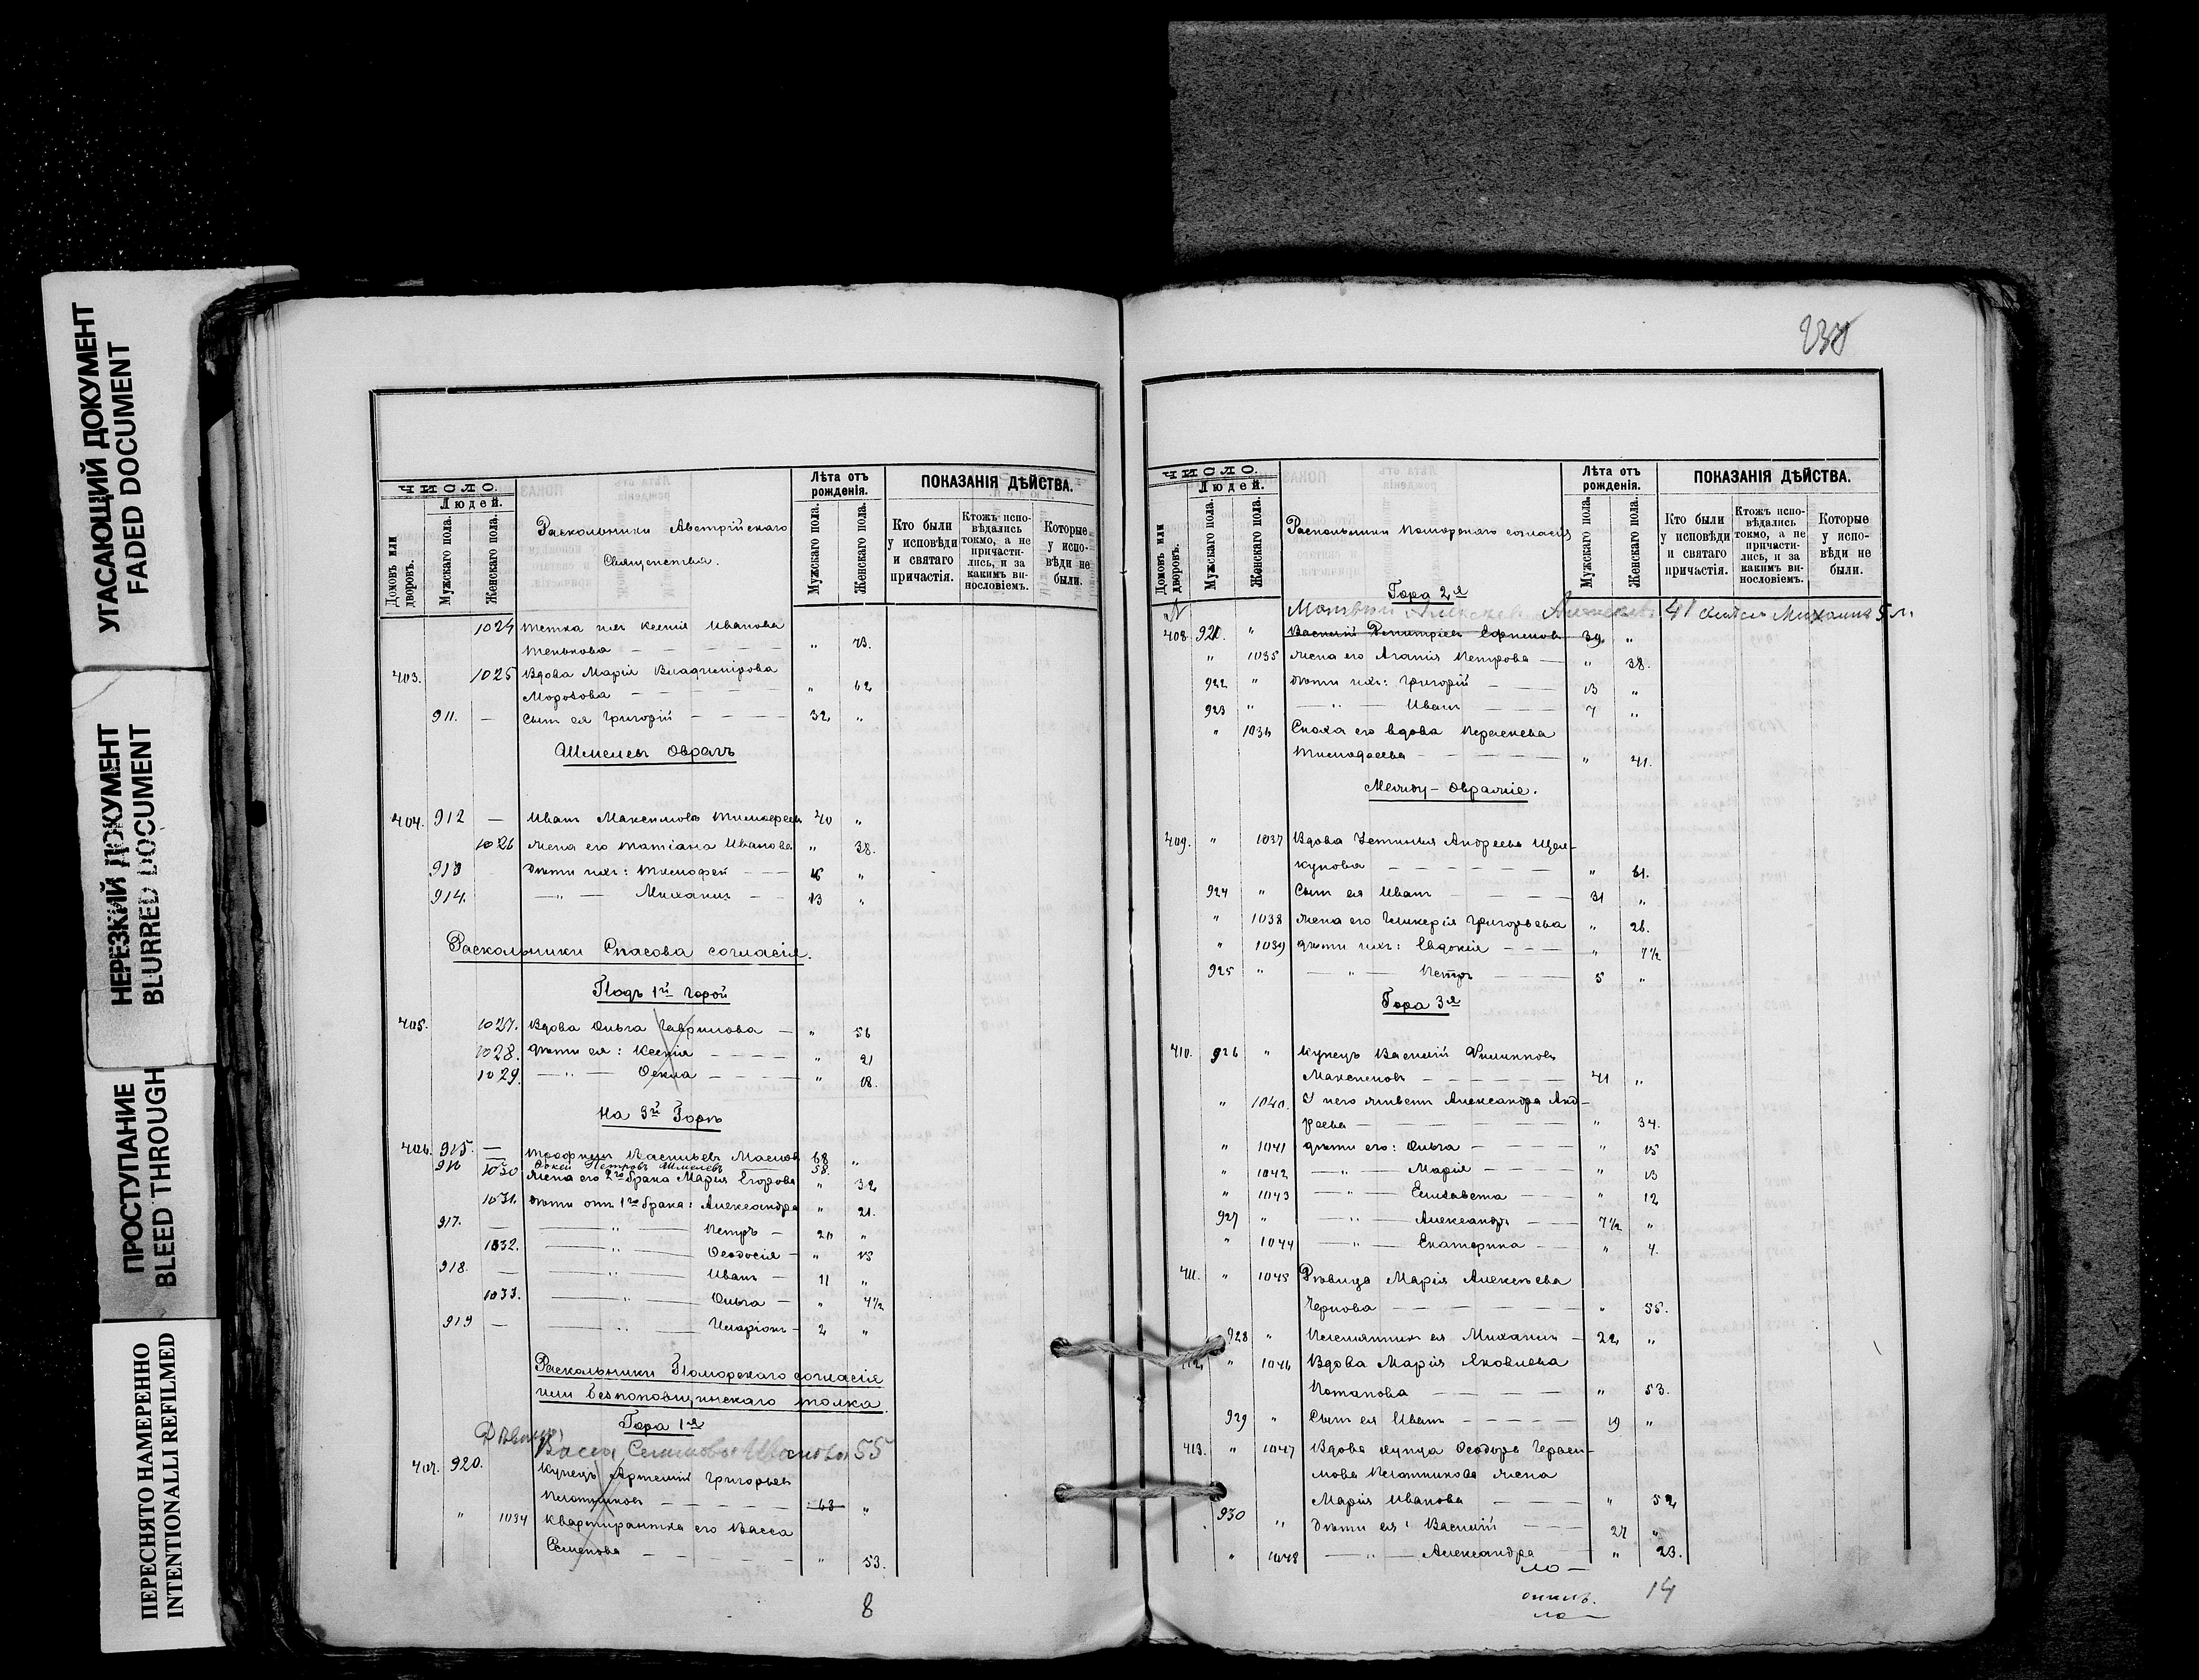 УГАСАЮЩИЙ ДОКУМЕНТ
FADED DOCUMENT
НЕРЕЗКИЙ ДОКУМЕНТ
BLURRED DOCUMENT
ПРОСТУПАНИЕ
BLEED THROUGH
ПЕРЕСНЯТО НАМЕРЕННО
INTENTIONALLI REFILMED
ЧИСЛО.
Людей.
Домовъ или дворовъ.
Мужскаго пола.
Женскаго пола.
Раскольники Австрійскаго
Священства.
Лѣта отъ рожденія.
Мужскаго пола.
Женскаго пола.
ПОКАЗАНІЯ ДѢЙСТВА.
Кто были у исповѣди и святаго причастія.
Ктожъ исповѣдались токмо, а не причастились, и за какимъ винословіемъ.
Которые у исповѣди не были.
1024 тетка ихъ Ксенія Иванова
Тенькова " 73.
403. 1025 Вдова Марія Владимірова
Морозова " 62
911. — Сынъ ея Григорій 32 "
Шмелевъ Оврагъ
404. 912 — Иванъ Максимовъ Тимофеевъ 40 "
1026 Жена его Татіана Иванова " 38.
913 Дѣти ихъ: Тимофей 16 "
914. — " — Михаилъ 13 "
Раскольники Спасова согласія.
Подъ 1й Горой
405. 1027. Вдова Ольга Гаврилова — " 56
1028. Дѣти ея: Ксенія " 21
1029. — " — Ѳекла " 18.
На 3й Горѣ
406. 915. — Трофимъ Васильевъ Масловъ 68 "
916 Петровъ Шмелевъ 58.
1030 Жена его 2го брака Марія Егорова " 32
1031. Дѣти отъ 1го брака: Александра " 21.
917. — " — Петръ — 20 "
1032. — " — Ѳеодосія — " 15
918. — " — Иванъ — 11 "
1033. — " — Ольга — " 4½
919 — " — Иларіонъ — 2 "
Раскольники Поморскаго согласія
или безпоповщинскаго толка.
Гора 1я
Васса Семенова Иванова 55
407. 920. Купецъ Артемій Григорьевъ
Плотниковъ 68 "
" 1034 Квартирантка его Васса
Семенова " 53.
8
238
ЧИСЛО.
Людей.
Домовъ или дворовъ.
Мужскаго пола.
Женскаго пола.
Раскольники Поморскаго согласія
Лѣта отъ рожденія.
Мужскаго пола.
Женскаго пола.
ПОКАЗАНІЯ ДѢЙСТВА.
Кто были у исповѣди и святаго причастія.
Ктожъ исповѣдались токмо, а не причастились, и за какимъ винословіемъ.
Которые у исповѣди не были.
Гора 2я
41 Михаилъ 5 л.
408. 921. " Василій Димитріевъ Ефимовъ 39 "
" 1035 Жена его Агапія Петрова — " 38.
922 " Дѣти ихъ: Григорій 13 "
923 " — " — Иванъ 7 "
" 1036 Сноха его вдова
Тимофеева " 41.
Между-Овражіе.
409. " 1037 Вдова Устинья Андреева Щел-
кунова " 61.
924 " Сынъ ея Иванъ 31 "
" 1038 Жена его Гликерія Григорьева " 26.
" 1039 Дѣти ихъ: Евдокія " 7½
925 " — " — Петръ 5 "
Гора 3я
410. 926 " Купецъ Василій Филипповъ
Максимовъ 41 "
" 1040. У него живетъ Александра Анд-
реева " 34.
" 1041 Дѣти его: Ольга " 15
" 1042 — " — Марія " 13
" 1043 — " — Елизавета " 12
927 " — " — Александръ 7½ "
" 1044 — " — Екатерина " 4.
411. " 1045 Дѣвица Марія Алексѣева
Чернова " 55.
928 " Племянникъ ея Михаилъ — 22 "
412. " 1046 Вдова Марія Яковлева
Потапова " 53.
929 " Сынъ ея Иванъ 19 "
413. " 1047 Вдова купца Ѳеодора Гераси-
мова Плотникова жена
Марія Иванова " 52
930 " Дѣти ея: Василій 27 "
" 1048 — " — Александра " 23.
14